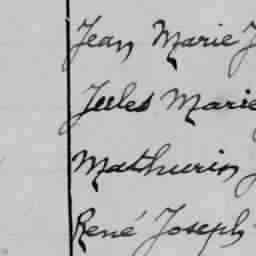 Jean Marie J
Jules Marie
Mathurin J
René Joseph